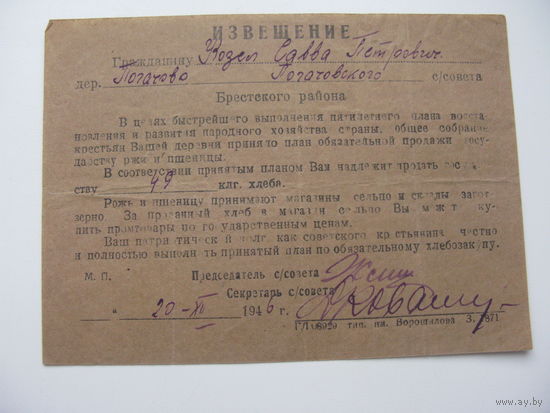 ИЗВЕЩЕНИЕ
Гражданину Козел Савва Петрович
дер. Погачово Погачовского с/совета
Брестского района
В целях быстрейшего выполнения пятилетнего плана восста-
новления и развития народного хозяйства страны, общее собрание
крестьян Вашей деревни приняло план обязательной продажи госу-
дарству ржи и пшеницы.
В соответствии принятым планом Вам надлежит продать госу-
ству 49 клг. хлеба.
Рожь и пшеницу принимают магазины сельпо и склады загот-
зерно. За проданный хлеб в магазин сельпо Вы можете ку-
пить промтовары по государственным ценам.
Ваш патриотический долг, как советского крестьянина честно
и полностью выполнить принятый план по обязательному хлебозакупу.
М. П. Председатель с/совета
Секретарь с/совета
" 20-XII 1946 г.
ГЛ 08929 тип. им. Ворошилова З. 1871
www.ay.by